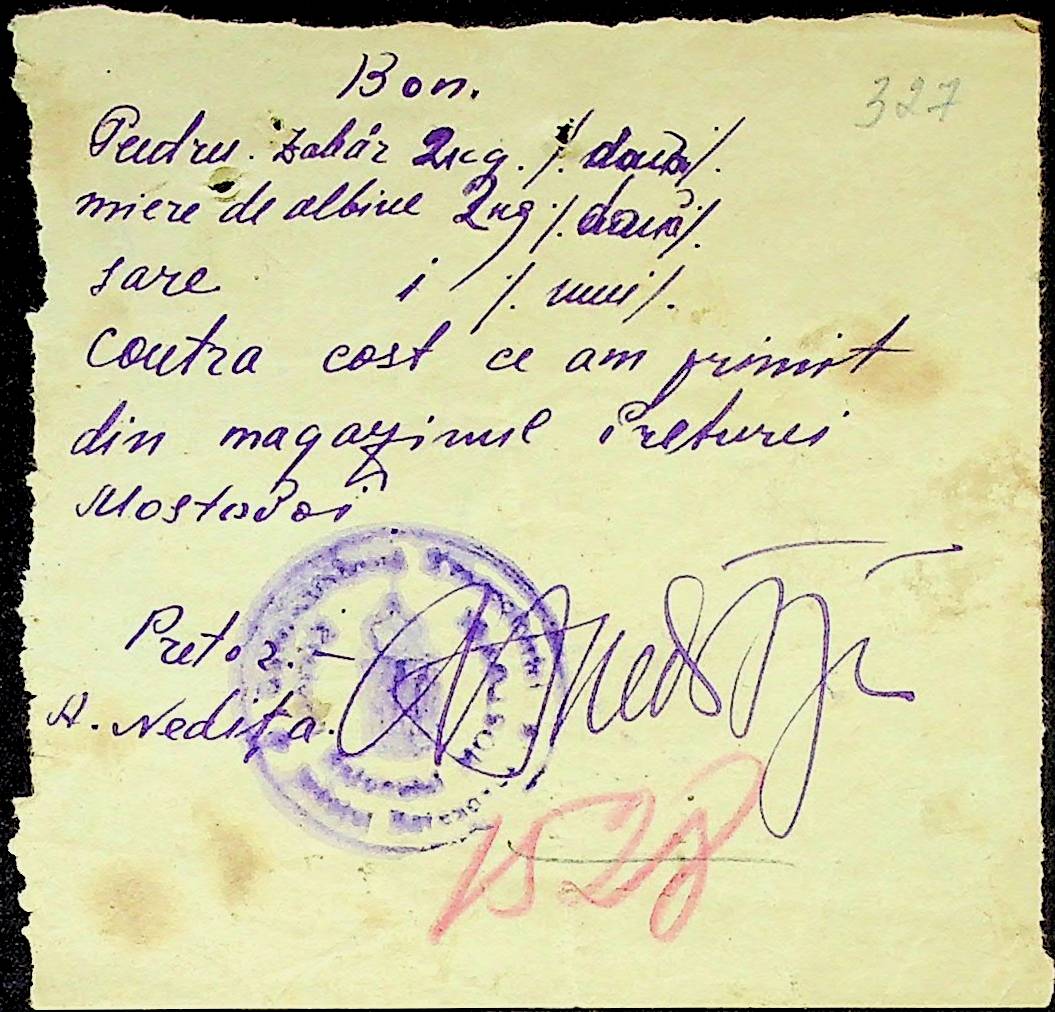 327
Bon.
Pentru zahăr 2 kg. /. două/.
miere de albine 2 kg /. două/.
sare 1 /. unu/.
Contra cost ce am primit
din magazinul Preturei
Mostovoi
Pretor. –
A. Nediță.